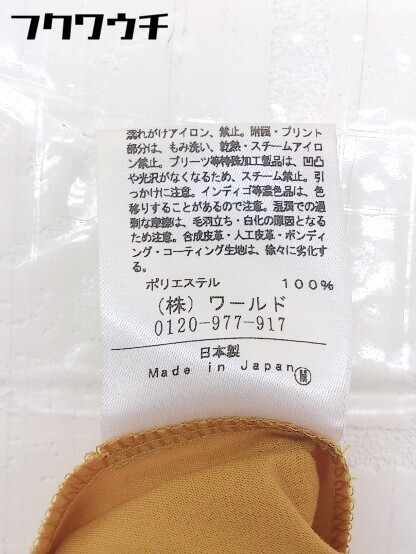 フクワウチ
濡れがけアイロン、禁止。附属・プリント
部分は、もみ洗い、乾熱・スチームアイロ
ン禁止。プリーツ等特殊加工製品は、凹凸
や光沢がなくなるため、スチーム禁止。引
っかけに注意。インディゴ等濃色品は、色
移りすることがあるので注意。湿潤での過
剰な摩擦は、毛羽立ち・白化の原因となる
ため注意。合成皮革・人工皮革・ボンディ
ング・コーティング生地は、徐々に劣化す
る。
ポリエステル 100%
(株) ワールド
0120-977-917
日本製
Made in Japan M